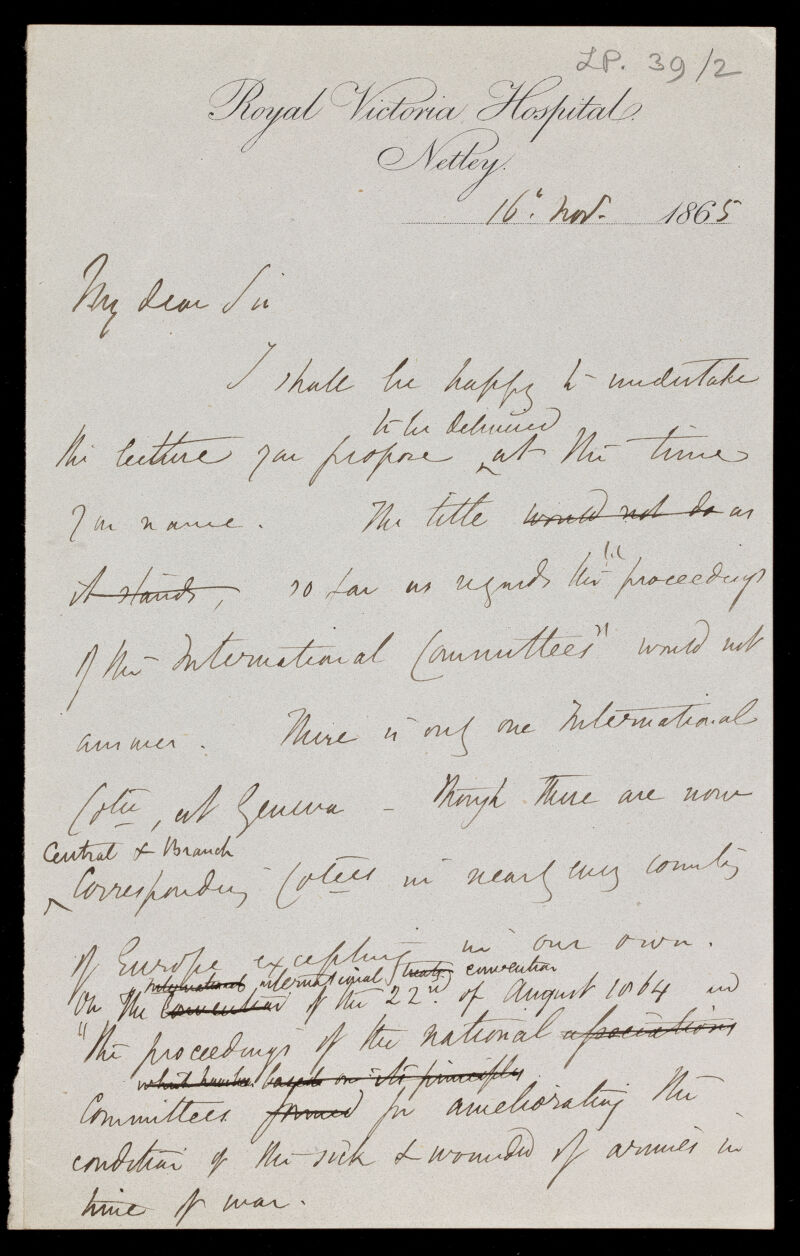 LP. 39/2
Royal Victoria Hospital.
Netley.
16th. Nov. 1865
My dear Sir
I shall be happy to undertake
to be delivered
the lecture you propose at the time
you name. The title would not do as
it stands, so far as regards the "proceedings
of the International Committees" would not
answer. There is only one International
Cotee, at Geneva - though there are now
Central & Branch
Corresponding Cotees in nearly every country
of Europe excepting in our own.
International international treaty convention
On "The Convention of the 22nd. of August 1864 and
"The proceedings of the national associations
based on its principles
Committees formed for ameliorating the
condition of the sick & wounded of armies in
time of war.